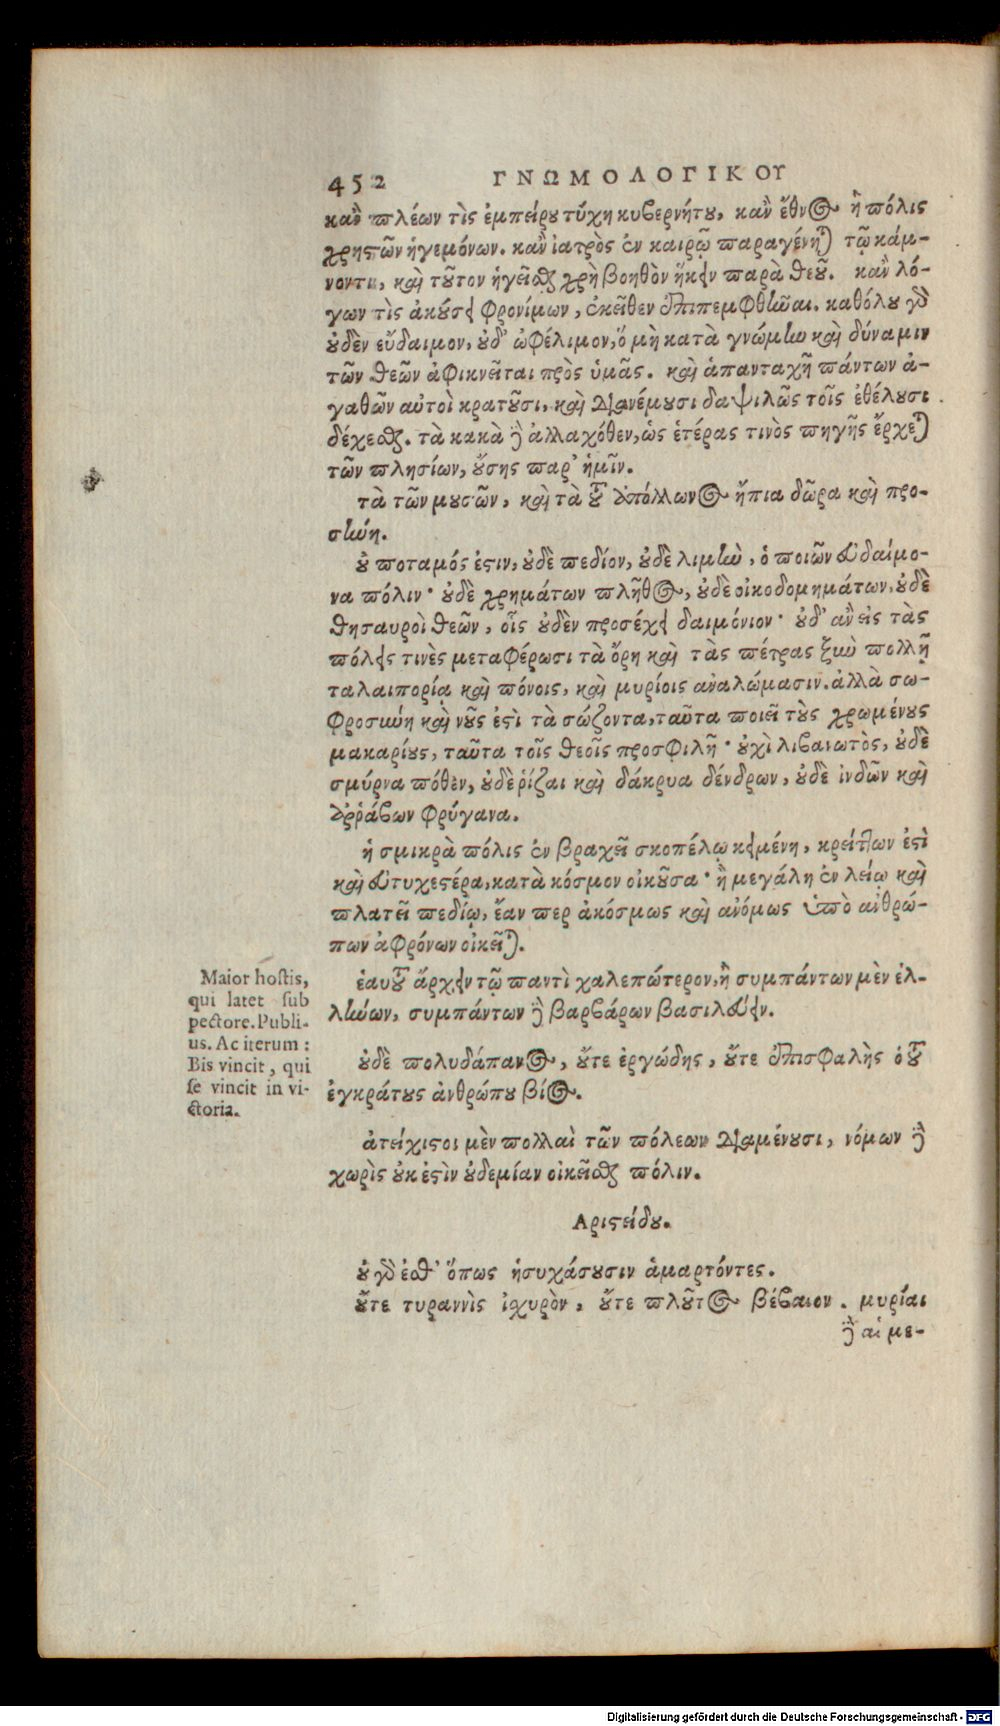 452 ΓΝΩΜΟΛΟΓΙΚΟΥ
κἂν πλέων τὶς ἐμπείρου τύχῃ κυβερνήτου, κἂν ἔθνος ἢ πόλις
χρηστῶν ἡγεμόνων. κἂν ἰατρὸς ἐν καιρῷ παραγένηται τῷ κάμ-
νοντι, καὶ τοῦτον ἡγεῖσθαι χρὴ βοηθὸν ἥκειν παρὰ θεοῦ. κἂν λό-
γων τὶς ἀκούσει φρονίμων, ἐκεῖθεν ἐπιπεμφθῆναι. καθόλου γὰρ
οὐδὲν εὔδαιμον, οὐδ' ὠφέλιμον, ὅ μὴ κατὰ γνώμην καὶ δύναμιν
τῶν θεῶν ἀφικνεῖται πρὸς ὑμᾶς. καὶ ἁπανταχῆ πάντων ἀ-
γαθῶν αὐτοὶ κρατοῦσι, καὶ διανέμουσι δαψιλῶς τοῖς ἐθέλουσι
δέχεσθαι. τὰ κακὰ δὲ ἀλλαχόθεν, ὡς ἑτέρας τινὸς πηγῆς ἔρχεται
τῶν πλησίων, οὔσης παρ' ἡμῖν.
τὰ τῶν μουσῶν, καὶ τὰ τοῦ ἀπόλλωνος ἤπια δῶρα καὶ προ-
σηνῆ.
οὐ ποταμός ἐστιν, οὐδὲ πεδίον, οὐδὲ λιμὴν, ὁ ποιῶν εὐδαίμο-
να πόλιν· οὐδὲ χρημάτων πλῆθος, οὐδὲ οἰκοδομημάτων, οὐδὲ
θησαυροὶ θεῶν, οἷς οὐδὲν προσέχει δαιμόνιον· οὐδ' ἂν εἰς τὰς
πόλεις τινὲς μεταφέρωσι τὰ ὄρη καὶ τὰς πέτρας ξὺν πολλῇ
ταλαιπορίᾳ καὶ πόνοις, καὶ μυρίοις ἀναλώμασιν. ἀλλὰ σω-
φροσύνη καὶ νοῦς ἐστὶ τὰ σώζοντα, ταῦτα ποιεῖ τοὺς χρωμένους
μακαρίους, ταῦτα τοῖς θεοῖς προσφιλῆ· οὐχὶ λιβανωτὸς, οὐδὲ
σμύρνα πόθεν, οὐδὲ ῥίζαι καὶ δάκρυα δένδρων, οὐδὲ ἰνδῶν καὶ
ἀρράβων φρύγανα.
ἡ σμικρὰ πόλις ἐν βραχεῖ σκοπέλῳ κειμένη, κρείττων ἐστὶ
καὶ εὐτυχεστέρα, κατὰ κόσμον οἰκοῦσα· ἢ μεγάλη ἐν λείῳ καὶ
πλατεῖ πεδίῳ, ἔαν περ ἀκόσμως καὶ ἀνόμως ὑπὸ ἀνθρώ-
πων ἀφρόνων οἰκεῖται.
ἑαυτοῦ ἄρχειν τῷ παντὶ χαλεπώτερον, ἢ συμπάντων μὲν ἑλ-
λήνων, συμπάντων δὲ βαρβάρων βασιλεύειν.
οὐδὲ πολυδάπανος, οὔτε ἐργώδης, οὔτε ἐπισφαλὴς ὁ τοῦ
ἐγκράτους ἀνθρώπου βίος.
ἀτείχιστοι μὲν πολλαὶ τῶν πόλεων διαμένουσι, νόμων δὲ
χωρὶς οὐκ ἐστὶν οὐδεμίαν οἰκεῖσθαι πόλιν.
Αριστείδου.
οὐ γὰρ ἐσθ' ὅπως ἡσυχάσουσιν ἁμαρτόντες.
οὔτε τυραννὶς ἰχυρὸν, οὔτε πλοῦτος βέβαιον. μυρίαι
δὲ αἱ με-
Maior hostis,
qui latet sub
pectore. Publi-
us. Ac iterum:
Bis vincit, qui
se vincit in vi-
ctoria.
Digitalisierung gefördert durch die Deutsche Forschungsgemeinschaft - DFG